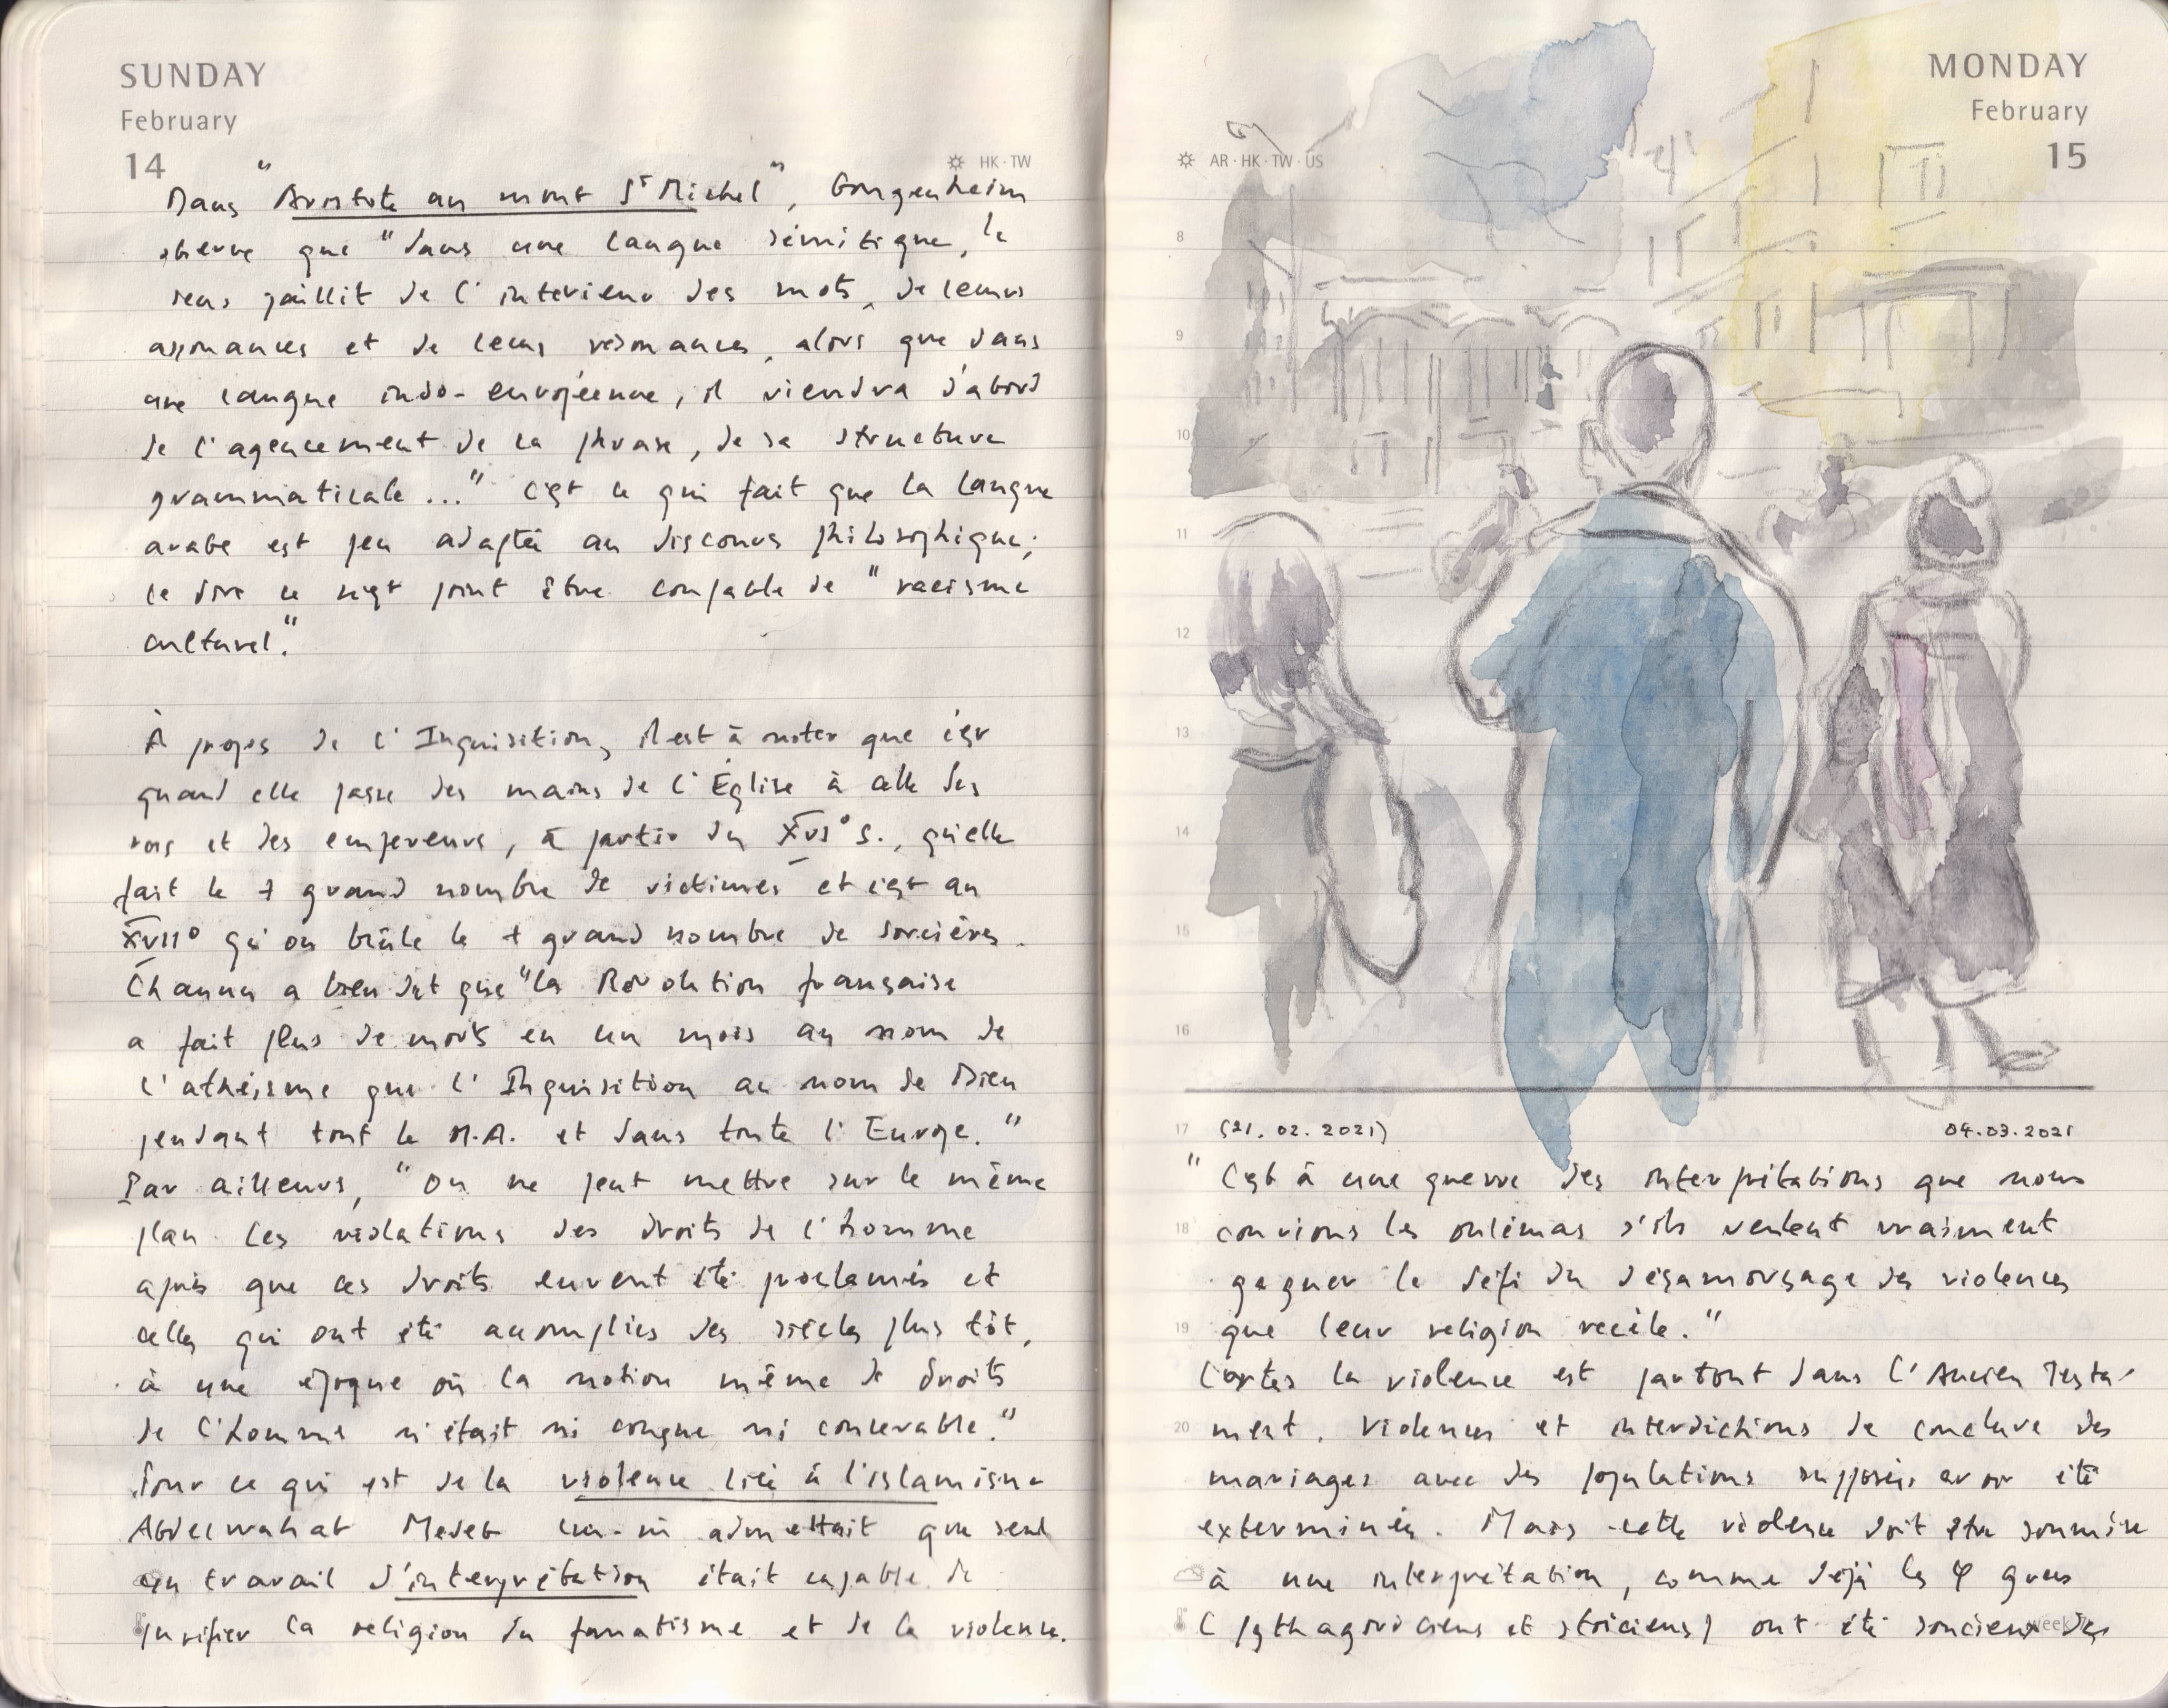 SUNDAY
February
14
HK · TW
Dans "Aristote au mont St Michel", Gougenheim
observe que "dans une langue sémitique, le
sens jaillit de l'intérieur des mots, de leurs
assonances et de leurs résonances, alors que dans
une langue indo-européenne, il viendra d'abord
de l'agencement de la phrase, de sa structure
grammaticale ..." C'est ce qui fait que la langue
arabe est peu adaptée au discours philosophique;
le dire ce n'est point être coupable de "racisme
culturel."
À propos de l'Inquisition, il est à noter que c'est
quand elle passe des mains de l'Église à celle des
rois et des empereurs, à partir du XVI° s., qu'elle
fait le + grand nombre de victimes et c'est au
XVII° qu'on brûle le + grand nombre de sorcières.
Chaunu a bien dit que "la Révolution française
a fait plus de morts en un mois au nom de
l'athéisme que l'Inquisition au nom de Dieu
pendant tout le M.A. et dans toute l'Europe."
Par ailleurs, "On ne peut mettre sur le même
plan les violations des droits de l'homme
après que ces droits eurent été proclamés et
celles qui ont été accomplies des siècles plus tôt,
à une époque où la notion même de droits
de l'homme n'était ni conçue ni concevable."
Pour ce qui est de la violence liée à l'islamisme
Abdelwahab Medeb lui-m admettait que seul
un travail d'interprétation était capable de
purifier la religion du fanatisme et de la violence.
MONDAY
February
15
AR · HK · TW · US
8
9
10
11
12
13
14
15
16
17
(21. 02. 2021)
04.03.2021
"C'est à une guerre des interprétations que nous
18
convions les oulémas s'ils veulent vraiment
gagner le défi du désamorçage des violences
19
que leur religion recèle."
Certes la violence est partout dans l'Ancien Testa-
20
ment. Violences et interdictions de conclure des
mariages avec des populations supposées avoir été
exterminées. Mais cette violence doit être soumise
à une interprétation, comme déjà les φ grecs
(pythagoriciens et stoïciens) ont été soucieux des
week